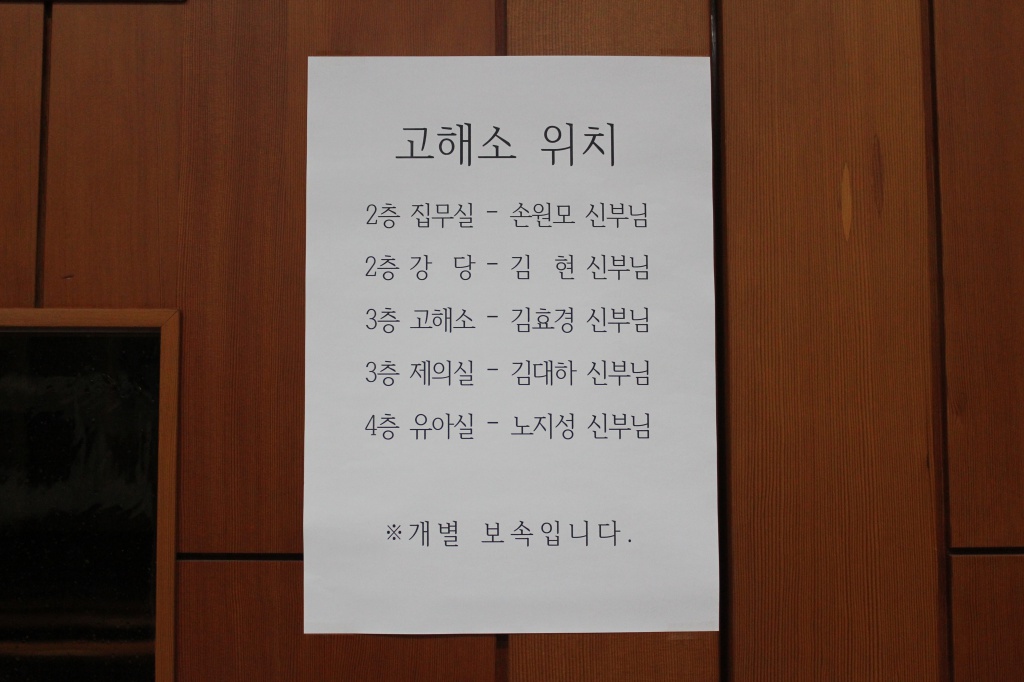 고해소 위치
2층 집무실 - 손원모 신부님
2층 강 당 - 김 현 신부님
3층 고해소 - 김효경 신부님
3층 제의실 - 김대하 신부님
4층 유아실 - 노지성 신부님
※개별 보속입니다.